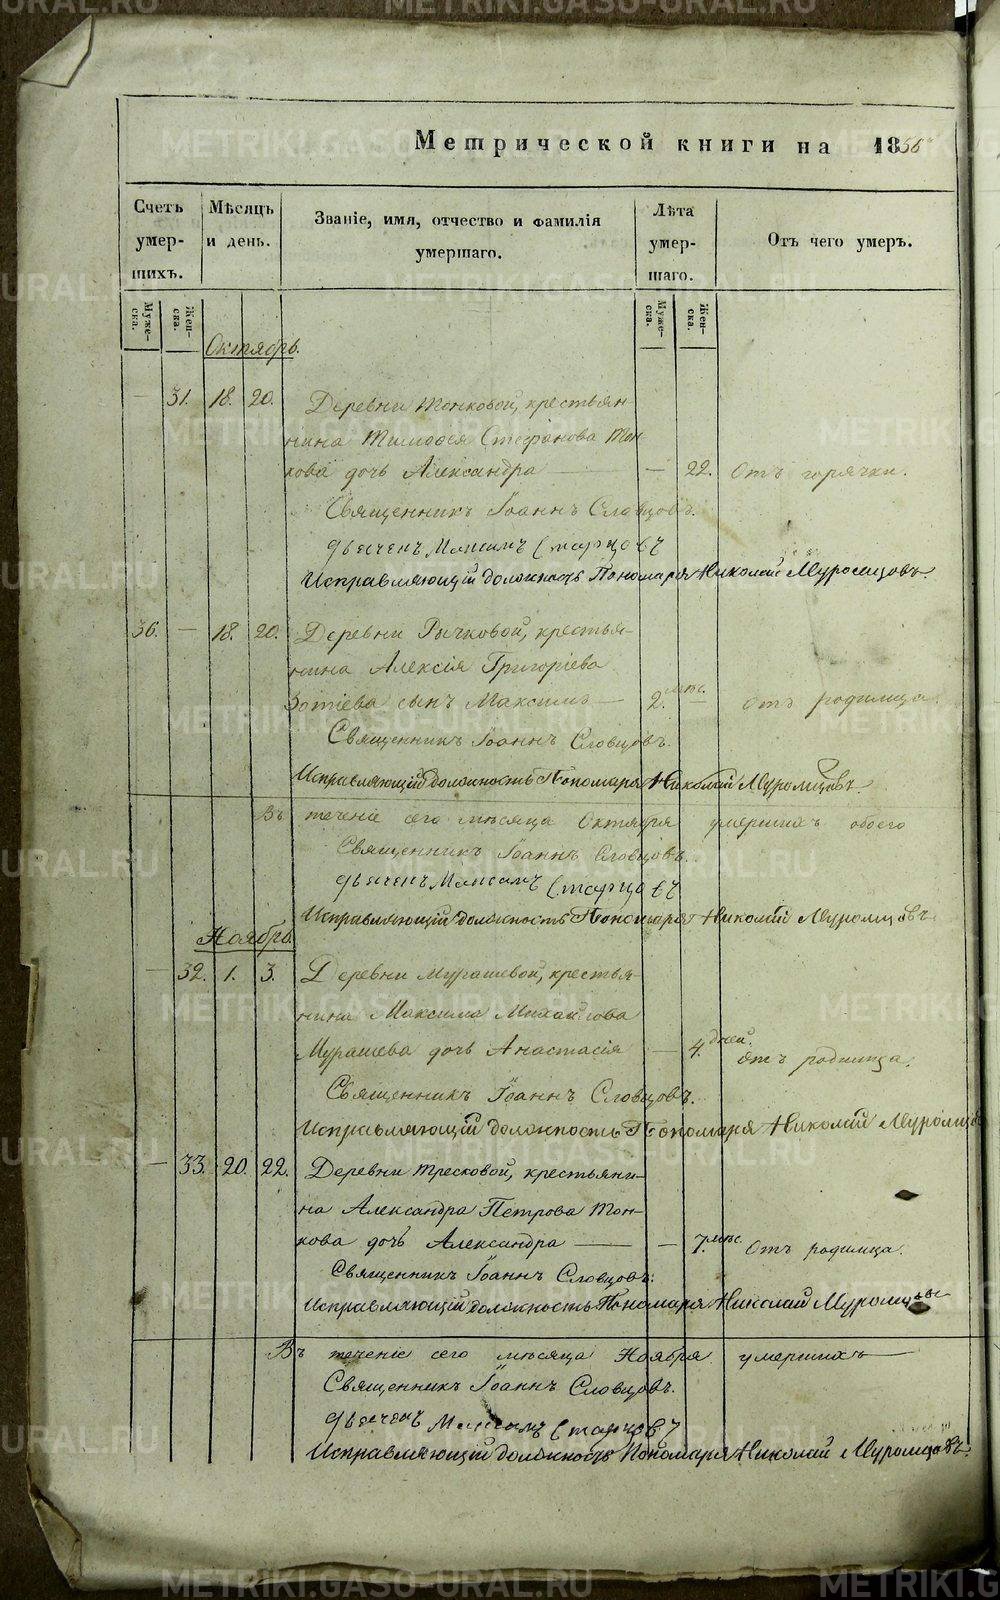 Метрической книги на 1856
Счетъ умер- шихъ.
Мѣсяцъ и день.
Званіе, имя, отчество и фамилія умершаго.
Лѣта умер- шаго.
Отъ чего умеръ.
Муже- ска.
Жен- ска.
Муже- ска.
Жен- ска.
Октябрь.
— 31. 18. 20. Деревни Тонковой, крестьян-
нина Тимоѳея Стефанова Тон-
кова дочь Александра — — 22. Отъ горячки.
Священникъ Іоаннъ Словцовъ.
Дьяченъ Максимъ Старцовъ
Исправляющій должность Пономаря Николай Муромцовъ.
36. — 18. 20. Деревни Рычковой, крестья-
нина Алексія Григоріева
Зотіева сынъ Максимъ — 2. мѣс. — отъ родимца.
Священникъ Іоаннъ Словцовъ.
Исправляющій должность Пономаря Николай Муромцовъ.
Въ теченіе сего мѣсяца Октября умершихъ обоего
Священникъ Іоаннъ Словцовъ.
Дьяченъ Максимъ Старцовъ
Исправляющій должность Пономаря Николай Муромцовъ
Ноябрь.
— 32. 1. 3. Деревни Мурашевой, крестья-
нина Максима Михайлова
Мурашева дочь Анастасія — 4. дней. отъ родимца.
Священникъ Іоаннъ Словцовъ.
Исправляющій должность Пономаря Николай Муромцовъ
— 33. 20. 22. Деревни Тресковой, крестьяни-
на Александра Петрова Тон-
кова дочь Александра — — 7. мѣс. Отъ родимца.
Священникъ Іоаннъ Словцовъ.
Исправляющій должность Пономаря Николай Муромцовъ
Въ теченіе сего мѣсяца Ноября умершихъ
Священникъ Іоаннъ Словцовъ.
Дьяченъ Максимъ Старцовъ
Исправляющій должность Пономаря Николай Муромцовъ.
METRIKI.GASO-URAL.RU